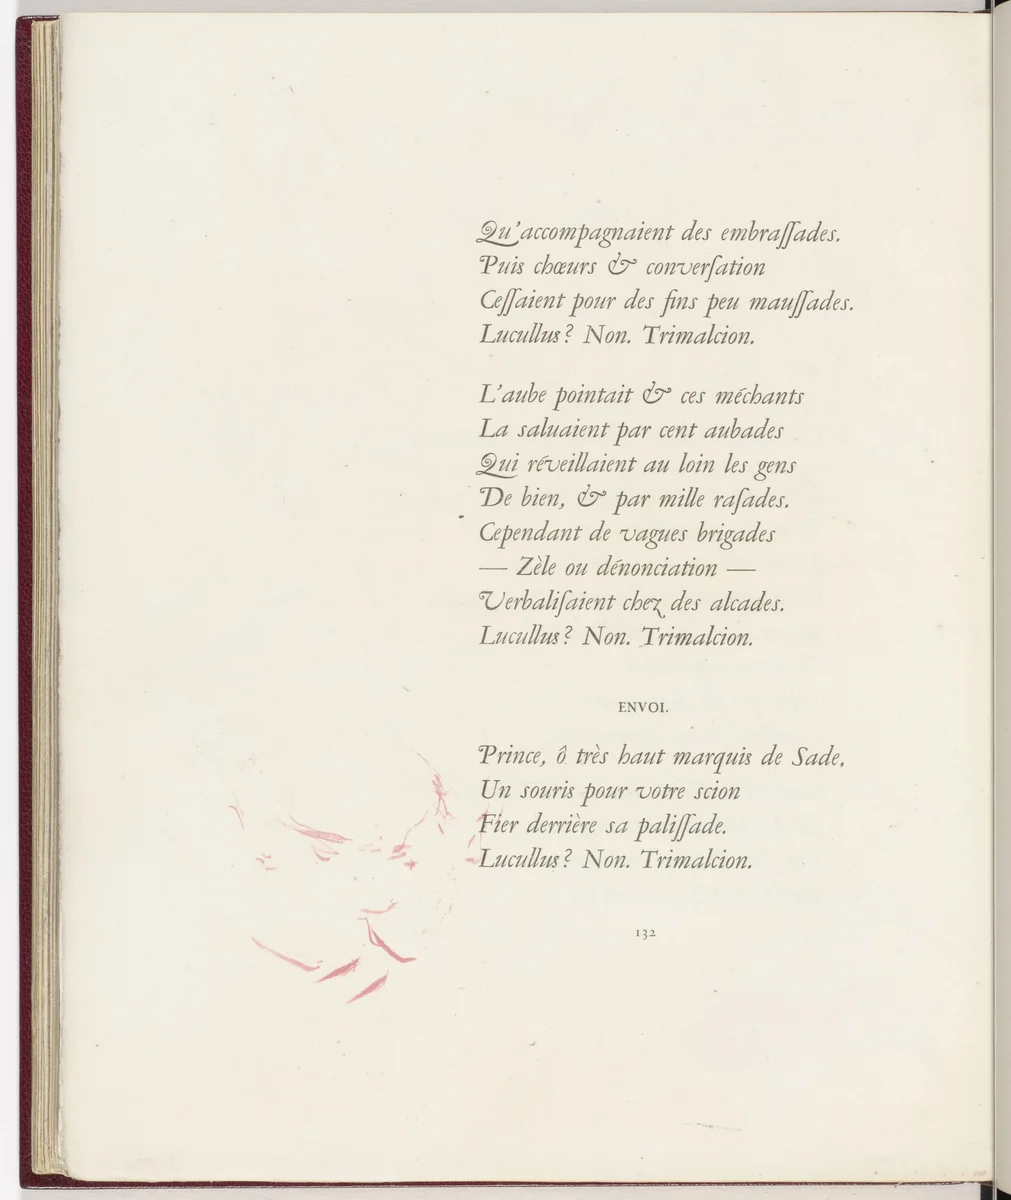 Qu'accompagnaient des embraſſades.
Puis chœurs & converſation
Ceſſaient pour des fins peu mauſſades.
Lucullus? Non. Trimalcion.
L'aube pointait & ces méchants
La saluaient par cent aubades
Qui réveillaient au loin les gens
De bien, & par mille raſades.
Cependant de vagues brigades
— Zèle ou dénonciation —
Verbaliſaient chez des alcades.
Lucullus? Non. Trimalcion.
ENVOI.
Prince, ô très haut marquis de Sade,
Un souris pour votre scion
Fier derrière sa paliſſade.
Lucullus? Non. Trimalcion.
132